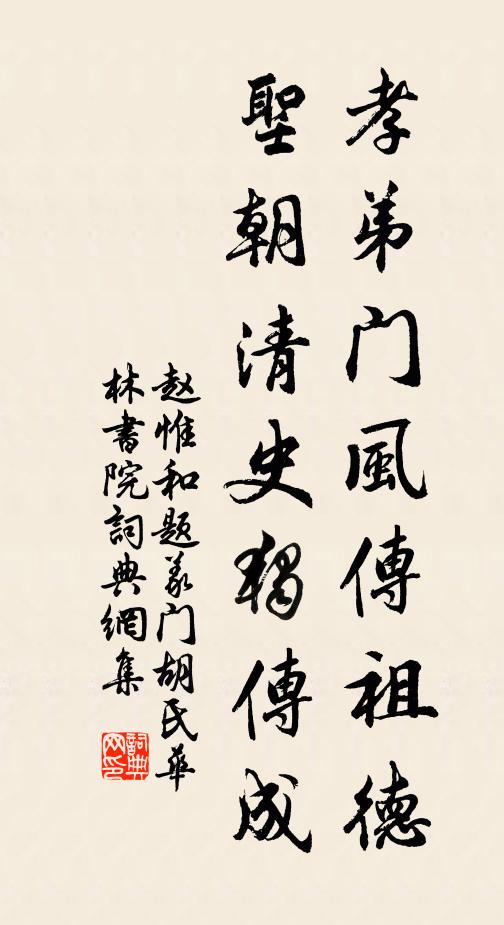 孝弟门風傳祖德
聖朝清史獨傳成
赵惟和题义门胡氏華
林書院詞典網集
詞典网印